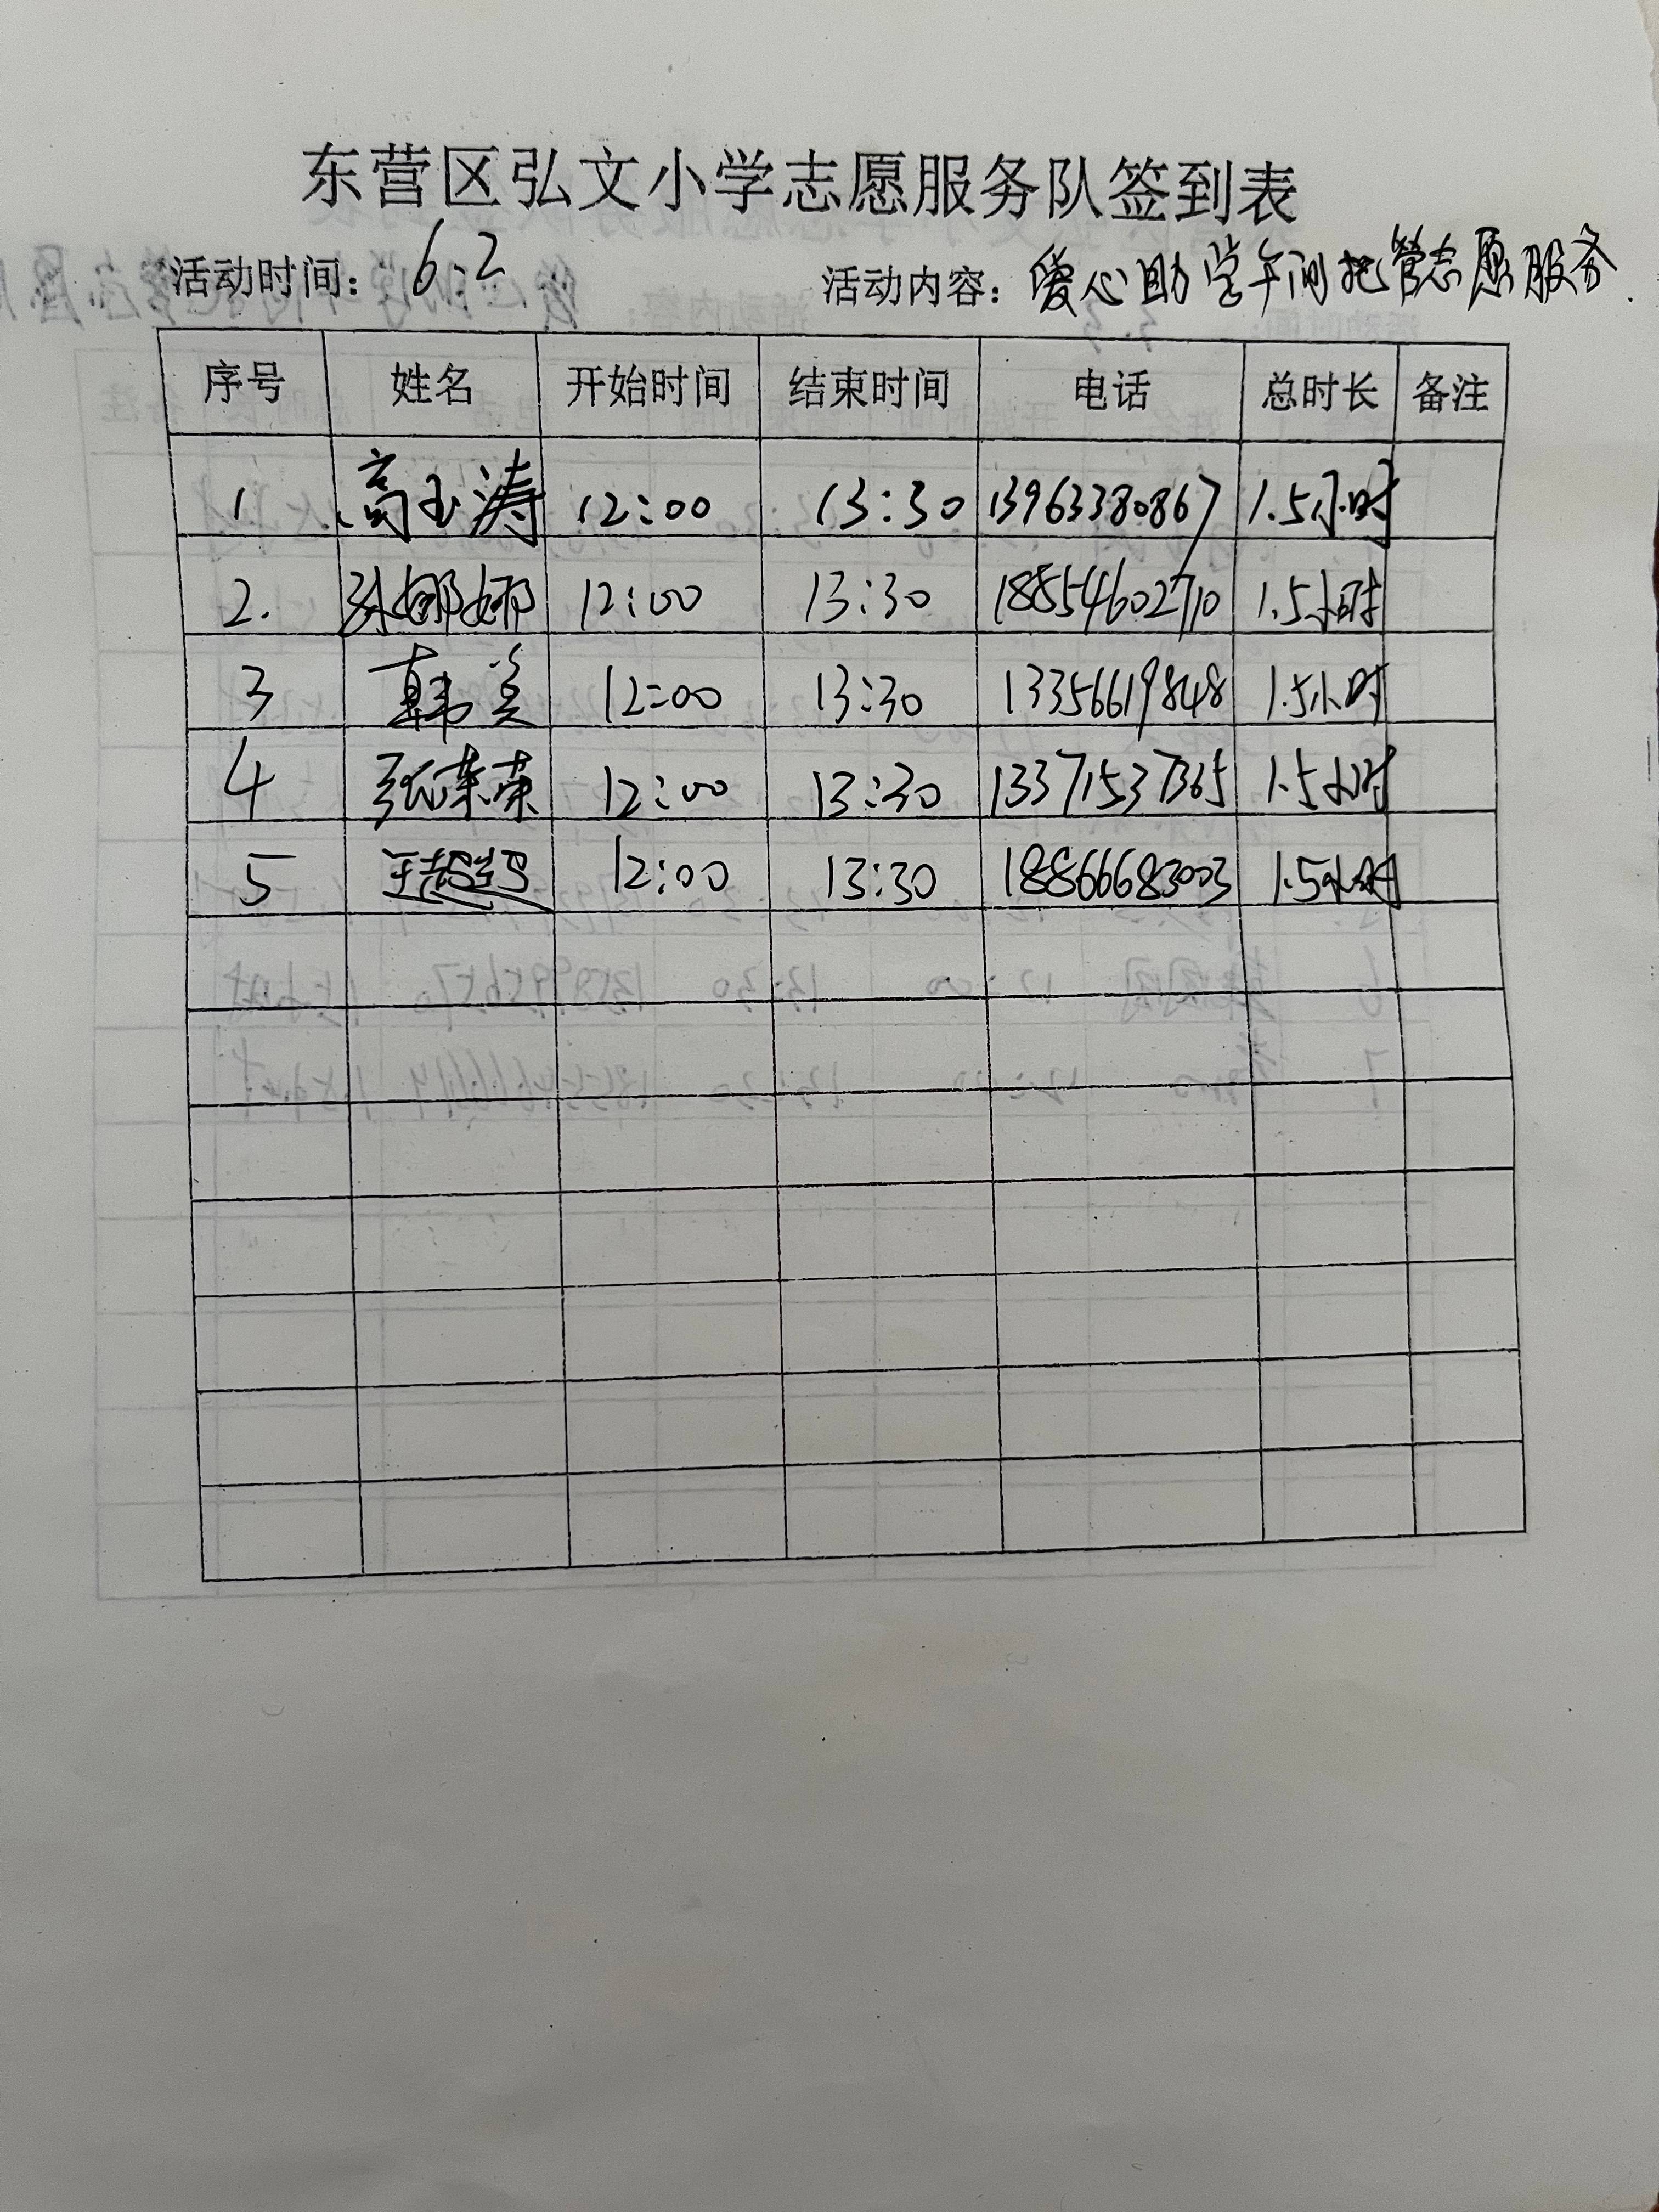 东营区弘文小学志愿服务队签到表
活动时间：6.2 活动内容：爱心助学午间托管志愿服务.
序号 姓名 开始时间 结束时间 电话 总时长 备注
1 高玉涛 12:00 13:30 13963380867 1.5小时
2. 孙娜娜 12:00 13:30 18554602710 1.5小时
3 韩美 12:00 13:30 13356619848 1.5小时
4 张荣荣 12:00 13:30 13371537365 1.5小时
5 王超超 12:00 13:30 18866683003 1.5小时